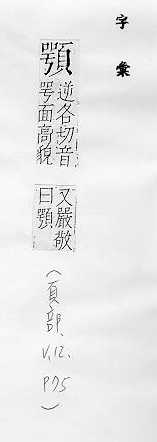 字彙
顎
逆各切音
咢面高貌
又嚴敬
曰顎
(頁部、
V.12.
P75)